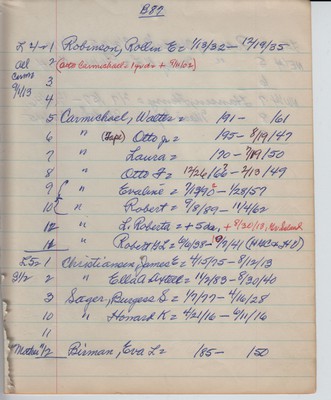 B87
L 4 = 1 Robinson, Rollin E = 1/13/32 — 12/19/35
All 2 (Otto Carmichael = 1 yr ds + 9/11/02)
9/1/13 3
4
5 Carmichael, Walter = 191 - 161
6 " (Tape) Otto Jr = 195 - 8/19/47
7 " Laura = 170 - 7/19/50
8 " Otto F = 12/26/62 - 2/13/49
9 " Evaline = 7/1/90 - 1/28/57
10 " Robert = 9/8/89 - 11/4/62
12 " L. Roberta = + 5 da, + 8/30/13,
12 " Robert H.L = 2/6/38 - 9/7/41
L 5 = 1 Christiansen, James E = 4/15/75 - 8/12/13
3 1/2 2 " Ella = 11/2/83 - 8/30/40
3 Sager, Burgess S = 1/7/77 - 4/16/28
10 " Howard K = 4/21/16 - 6/11/16
11
Mother 1/2 Birman, Eva L = 185 - 150